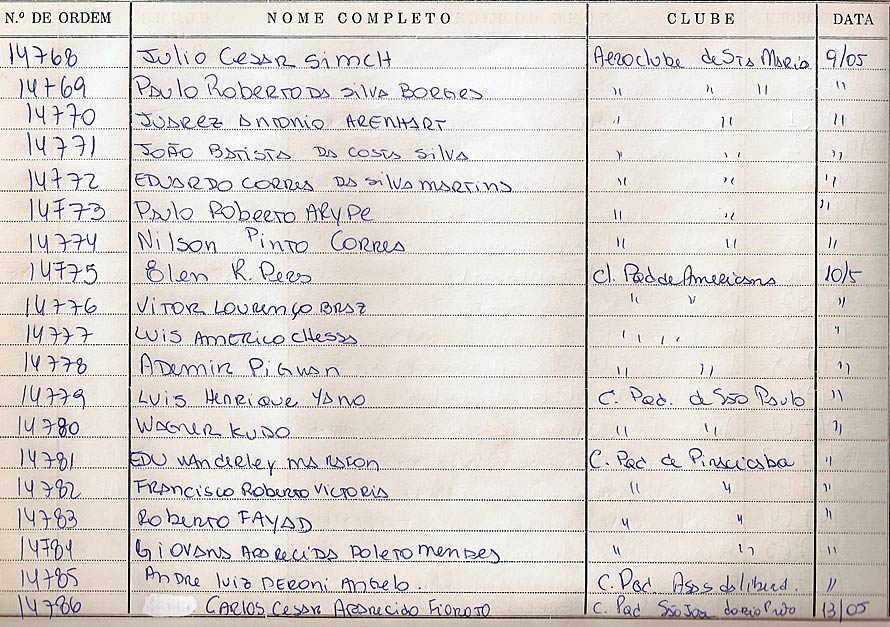 N.º DE ORDEM NOME COMPLETO CLUBE DATA
14768 Julio Cesar Simch Aeroclube de Sta Maria 9/05
14769 Paulo Roberto da Silva Borges " " " "
14770 Juarez Antonio Arenhart " " "
14771 João Batista da Costa Silva " " "
14772 Eduardo Correa da Silva Martins " " "
14773 Paulo Roberto Arype " " "
14774 Nilson Pinto Correa " " "
14775 Elen R. Peres Cl. Paq de Americana 10/5
14776 Vitor Lourenço Braz " " "
14777 Luis Americo Chessa " " "
14778 Ademir Pignan " " "
14779 Luis Henrique Yano C. Paq. de São Paulo "
14780 Wagner Kudo " " "
14781 Edu Vanderley Marafon C. Paq de Piracicaba "
14782 Francisco Roberto Victoria " " "
14783 Roberto Fayad " " "
14784 Giovana Aparecida Poleto Mendes " " "
14785 Andre Luiz Deroni Angelo. C. Paq. Asas da liberd. "
14786 Carlos Cesar Aparecido Fioroto C. Paq São Jose do Rio Preto 13/05